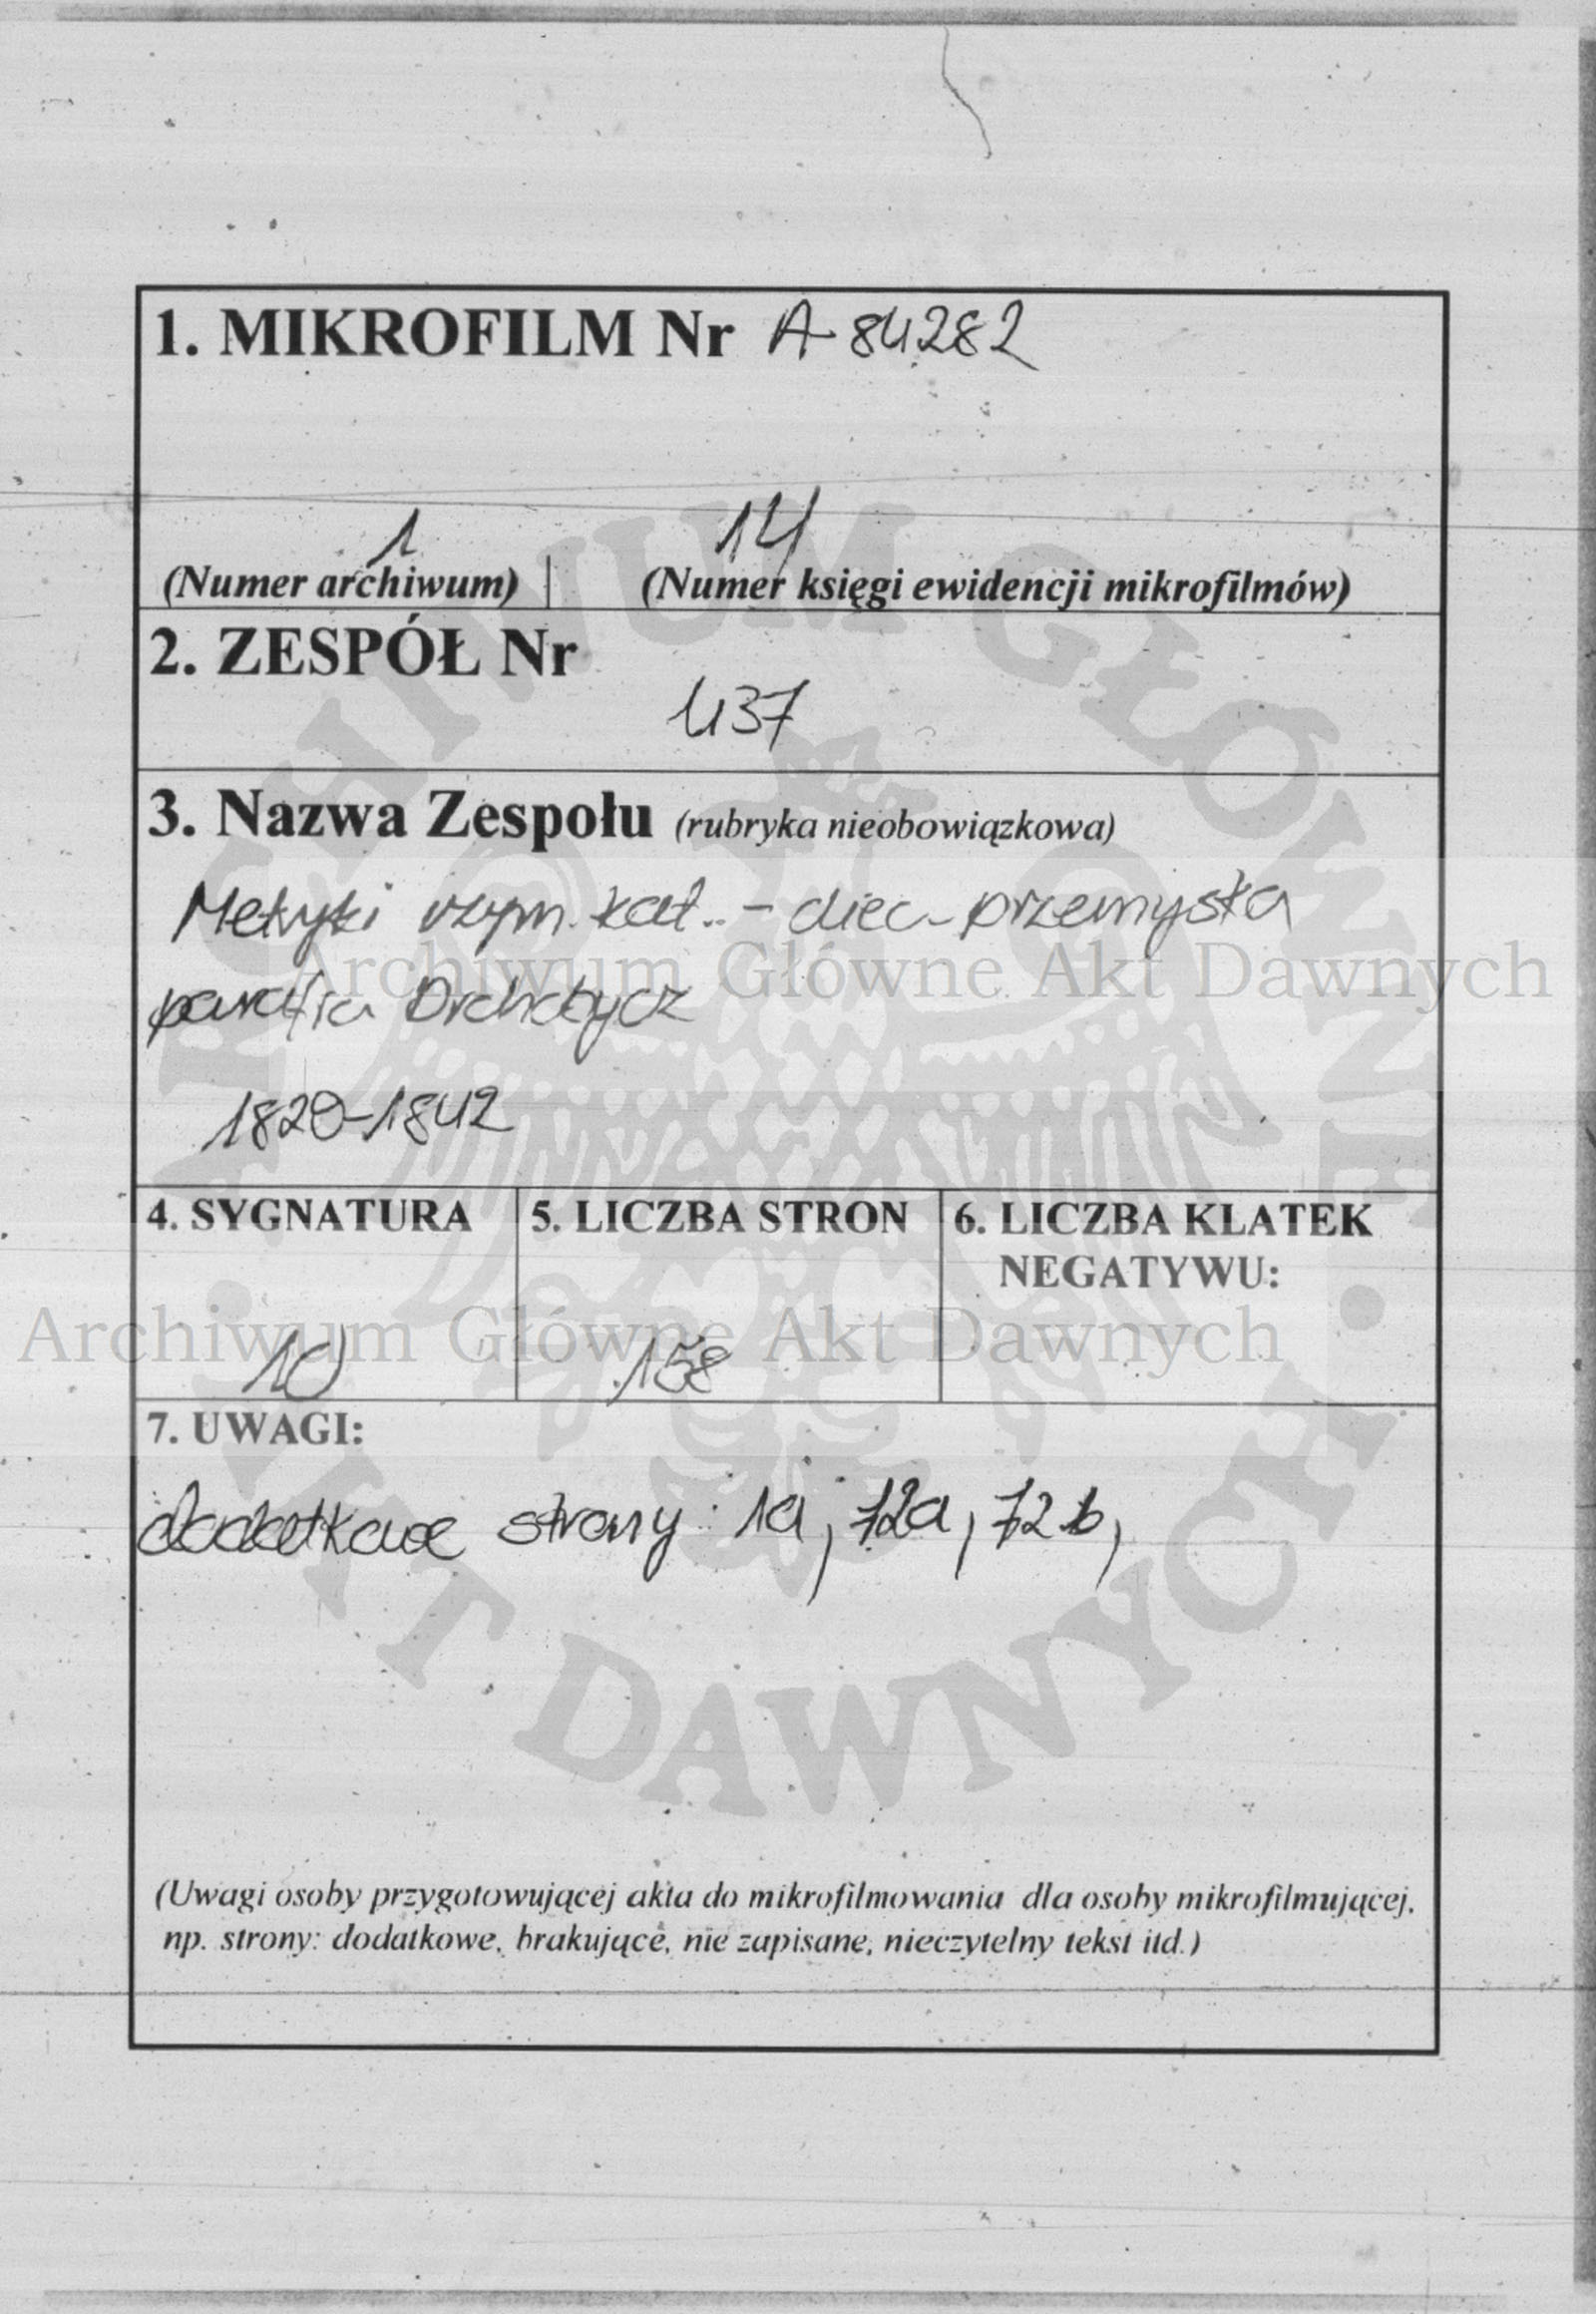 1. MIKROFILM Nr A-84282
1 14
(Numer archiwum) | (Numer księgi ewidencji mikrofilmów)
2. ZESPÓŁ Nr
437
3. Nazwa Zespołu (rubryka nieobowiązkowa)
Metryki rzym. kat. - diec. przemyska
Archiwum Główne Akt Dawnych
parafia Drohobycz
1820-1842
4. SYGNATURA 5. LICZBA STRON 6. LICZBA KLATEK
NEGATYWU:
Archiwum Główne Akt Dawnych
10 158
7. UWAGI:
dodatkowe strony: 1a, 72a, 72b,
(Uwagi osoby przygotowującej akta do mikrofilmowania dla osoby mikrofilmującej,
np. strony: dodatkowe, brakujące, nie zapisane, nieczytelny tekst itd.)
ARCHIWUM GŁÓWNE AKT DAWNYCH